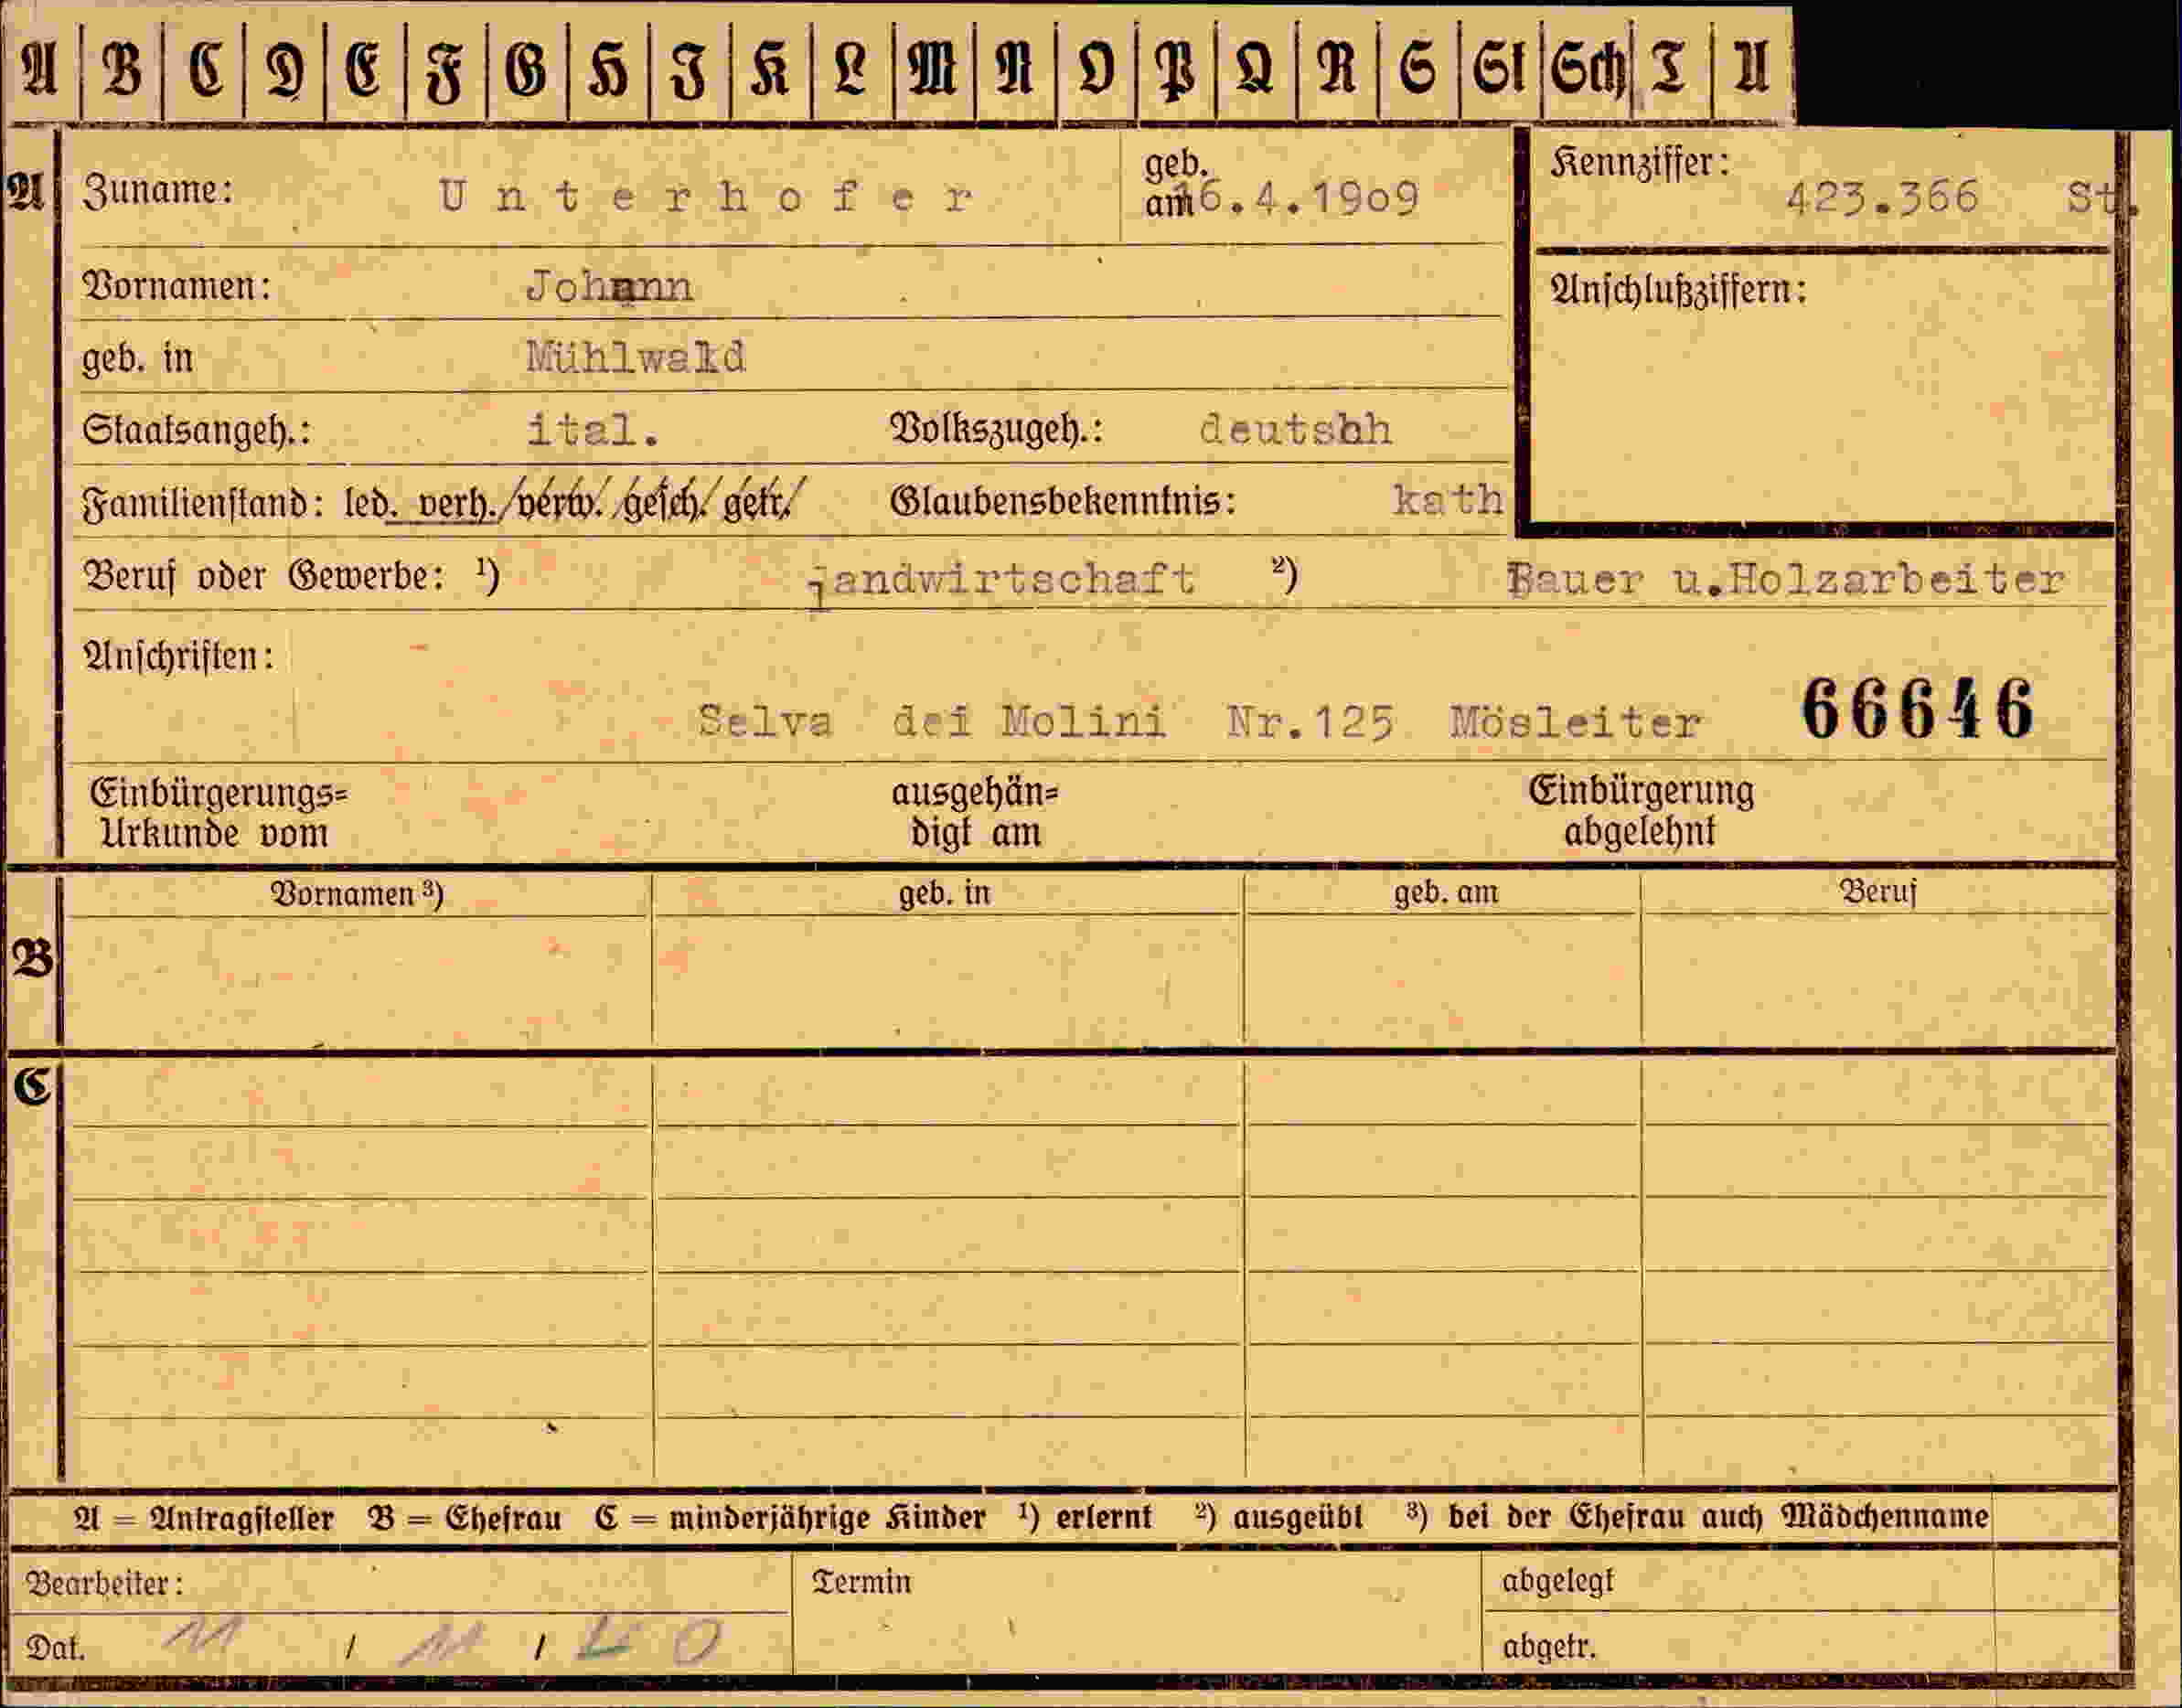 A B C D E F G H I K L M N O P Q R S St Sch T U
A Zuname: Unterhofer geb. am 16.4.1909 Kennziffer: 423.366 St.
Vornamen: Johann Anschlußziffern:
geb. in Mühlwald
Staatsangeh.: ital. Volkszugeh.: deutshh
Familienstand: led. verh./verw./gesch./getr./ Glaubensbekenntnis: kath
Beruf oder Gewerbe: ¹) Landwirtschaft ²) Bauer u.Holzarbeiter
Anschriften:
Selva dei Molini Nr.125 Mösleiter 66646
Einbürgerungs= ausgehän= Einbürgerung
Urkunde vom digt am abgelehnt
Vornamen ³) geb. in geb. am Beruf
B
C
A = Antragsteller B = Ehefrau C = minderjährige Kinder ¹) erlernt ²) ausgeübt ³) bei der Ehefrau auch Mädchenname
Bearbeiter: Termin abgelegt
Dat. 11 / 11 / 40 abgetr.